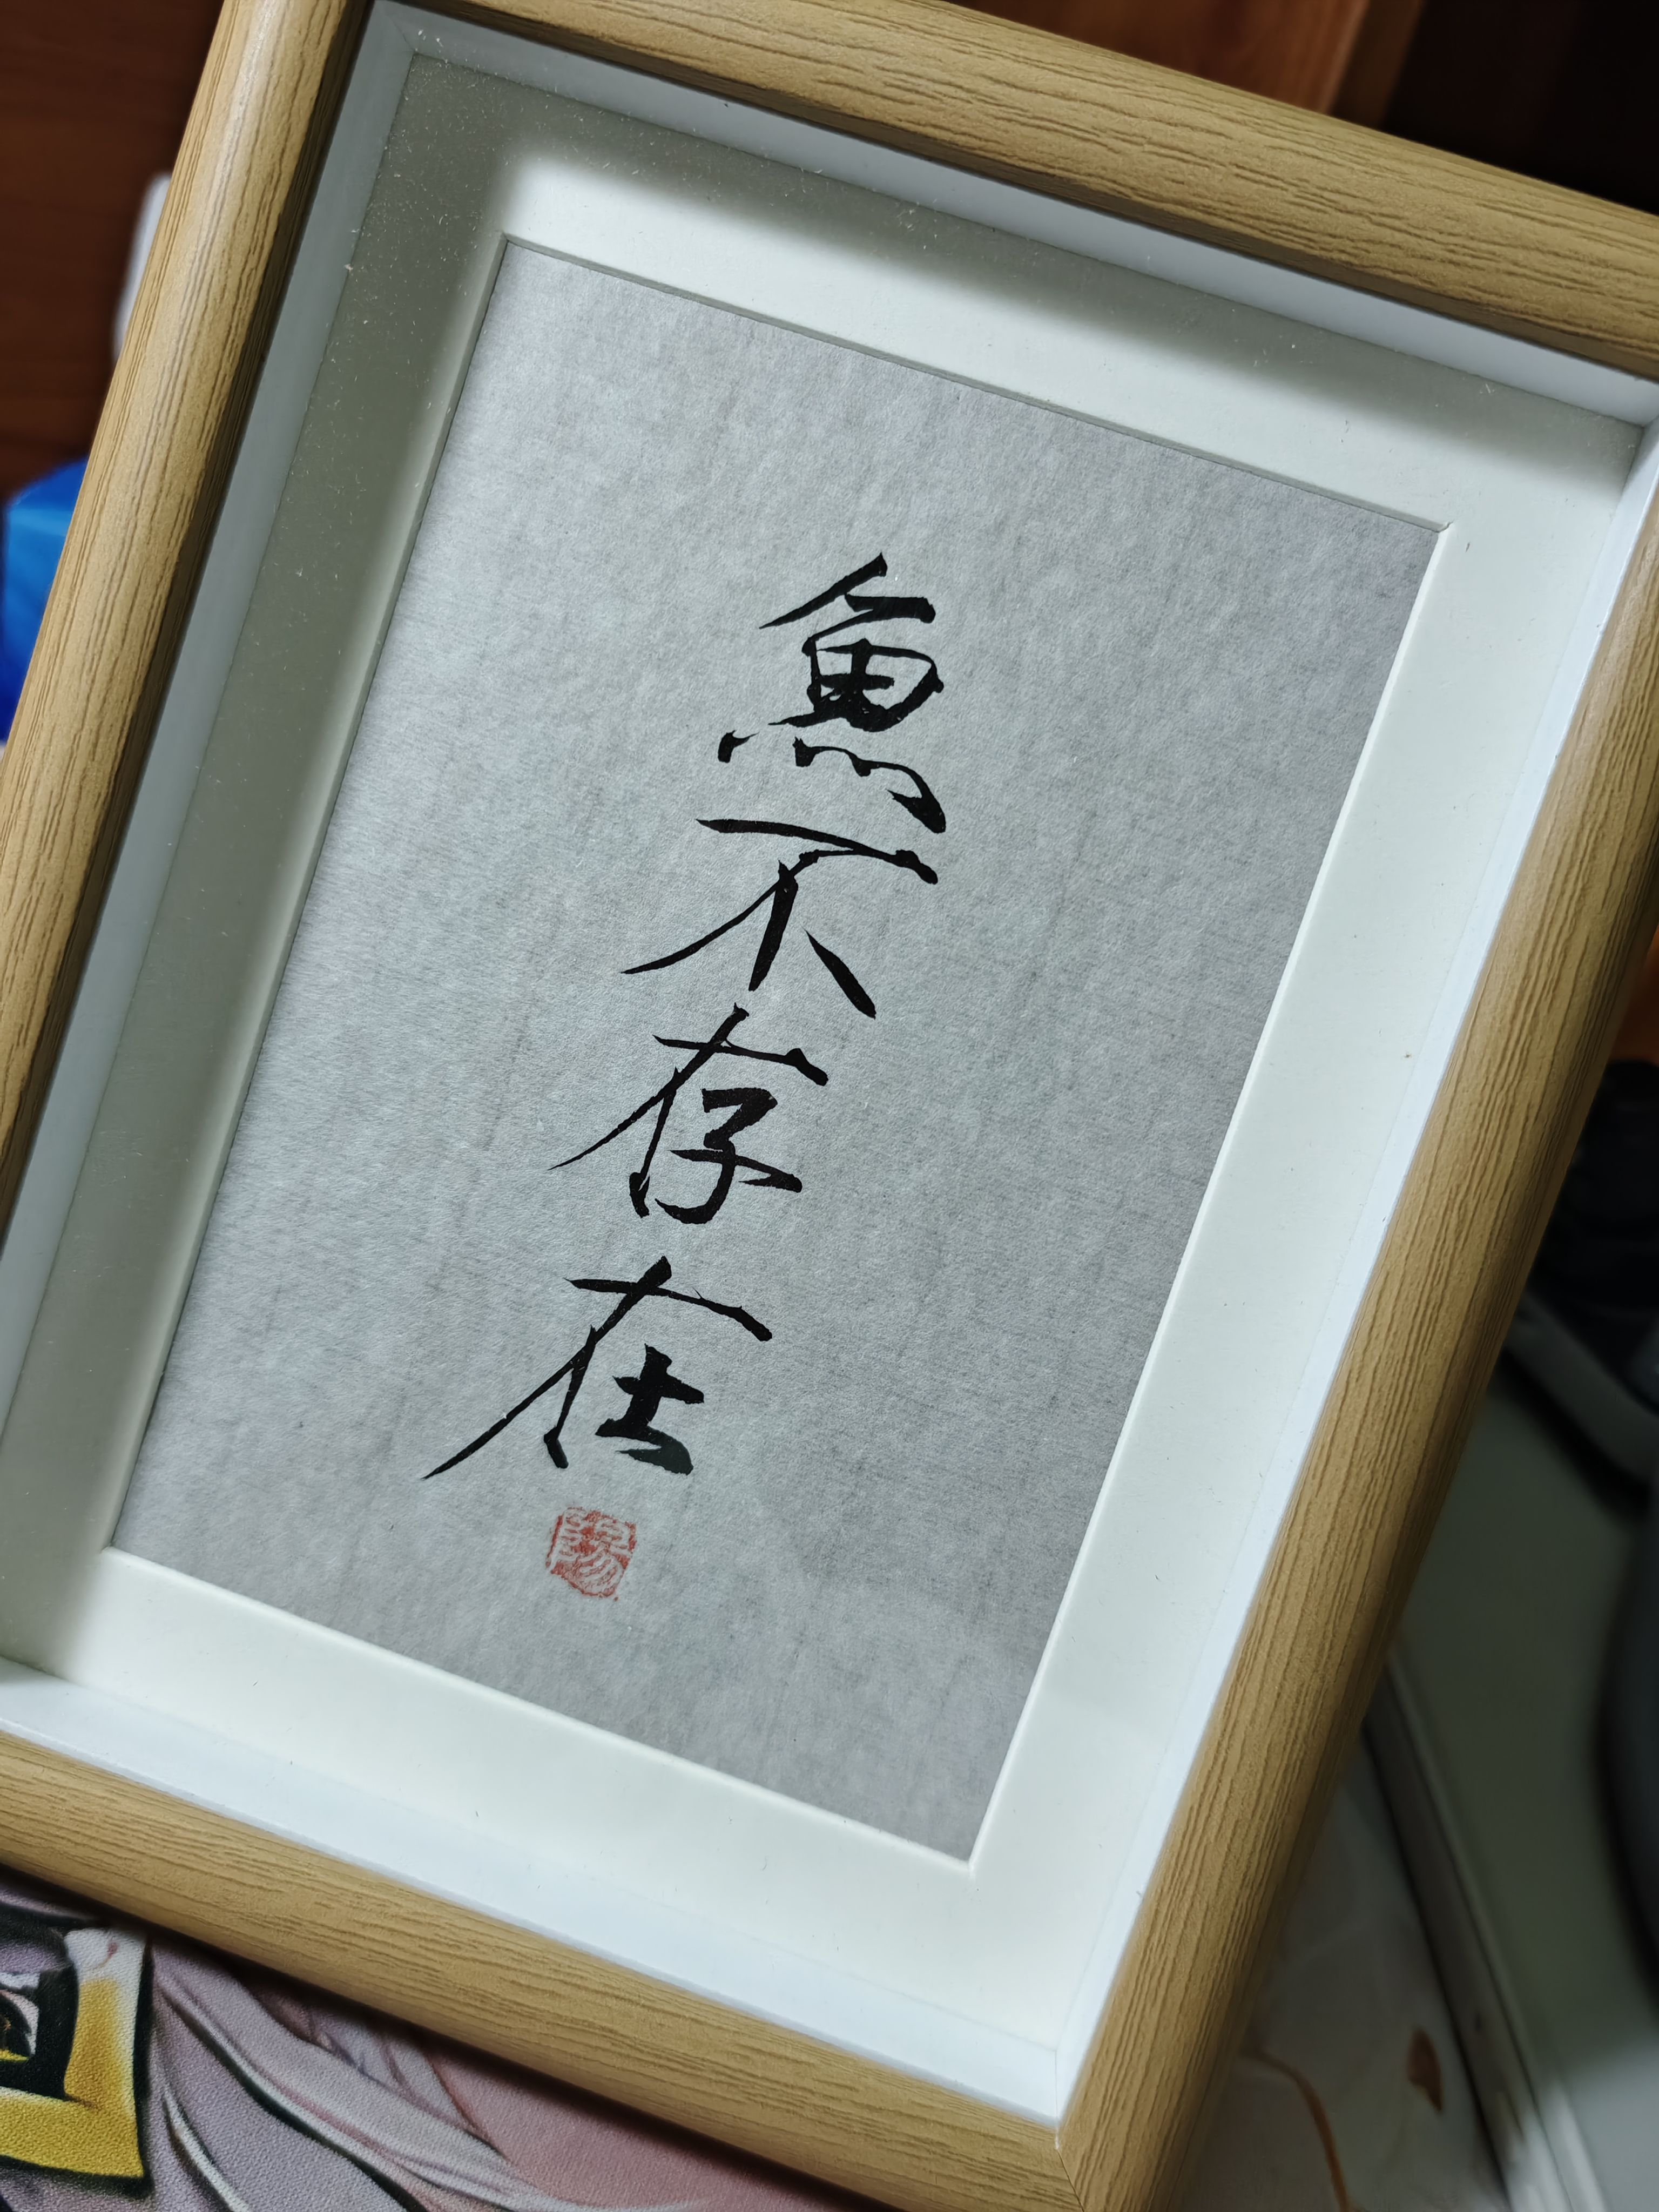 魚不存在
陽